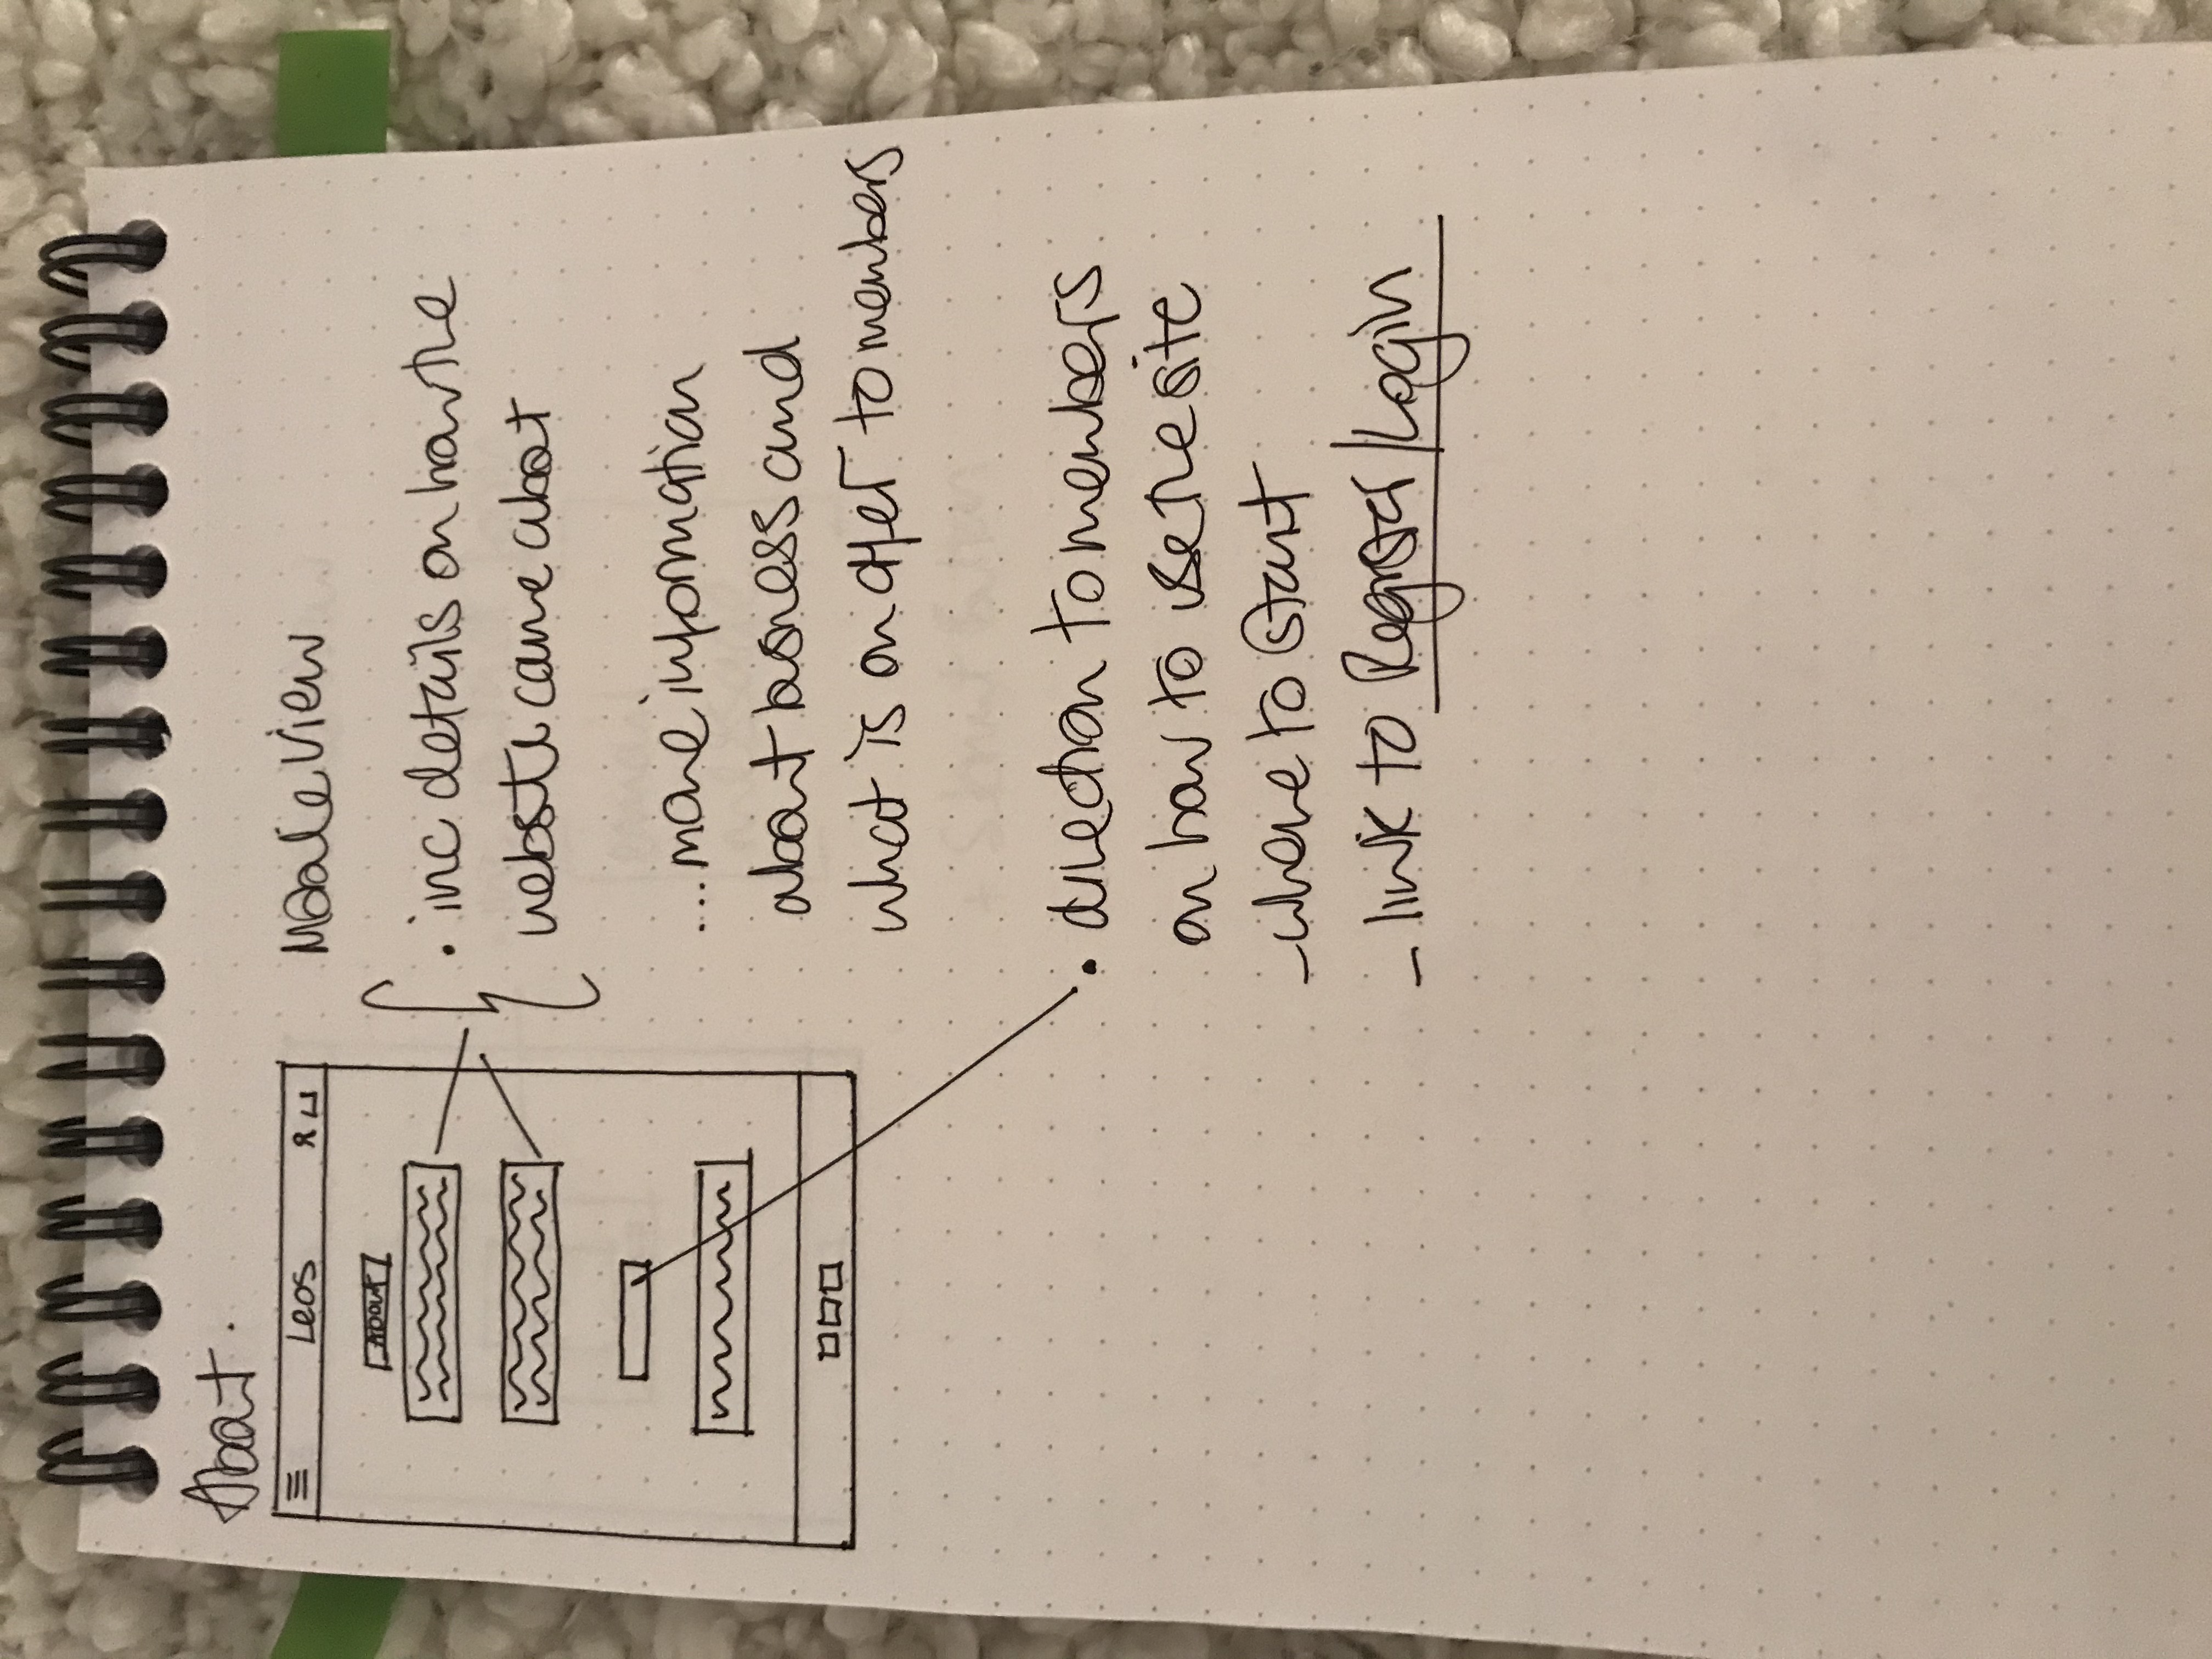 About.
Leos
ABOUT
Mobile View
• inc details on how the
website came about
...more information
about business and
what is on offer to members
• direction to members
on how to use the site
- where to start
- link to Register/Login